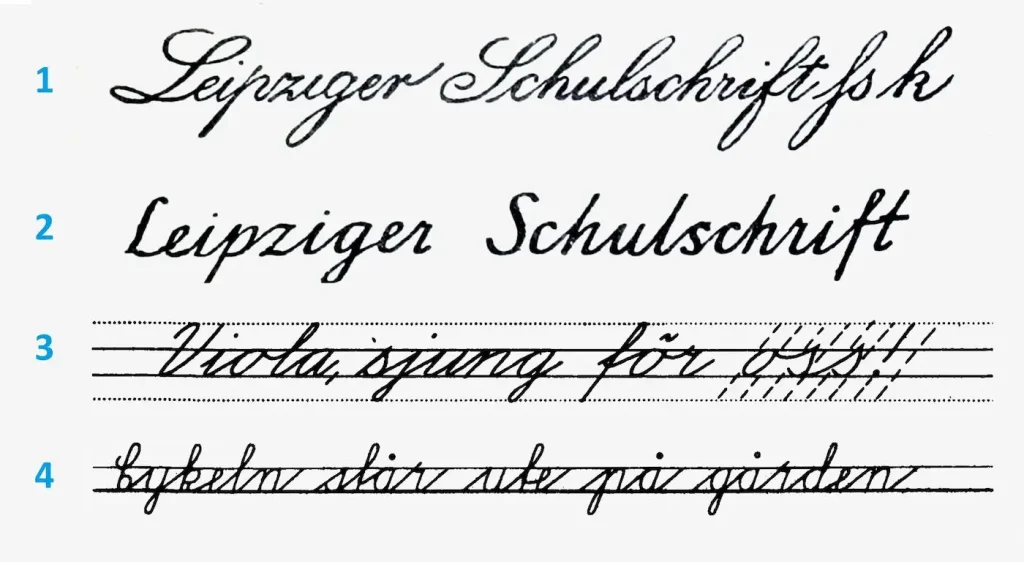 1 Leipziger Schulschrift ß k
2 Leipziger Schulschrift
3 Viola, sjung för oss!
4 Cykeln står ute på gården